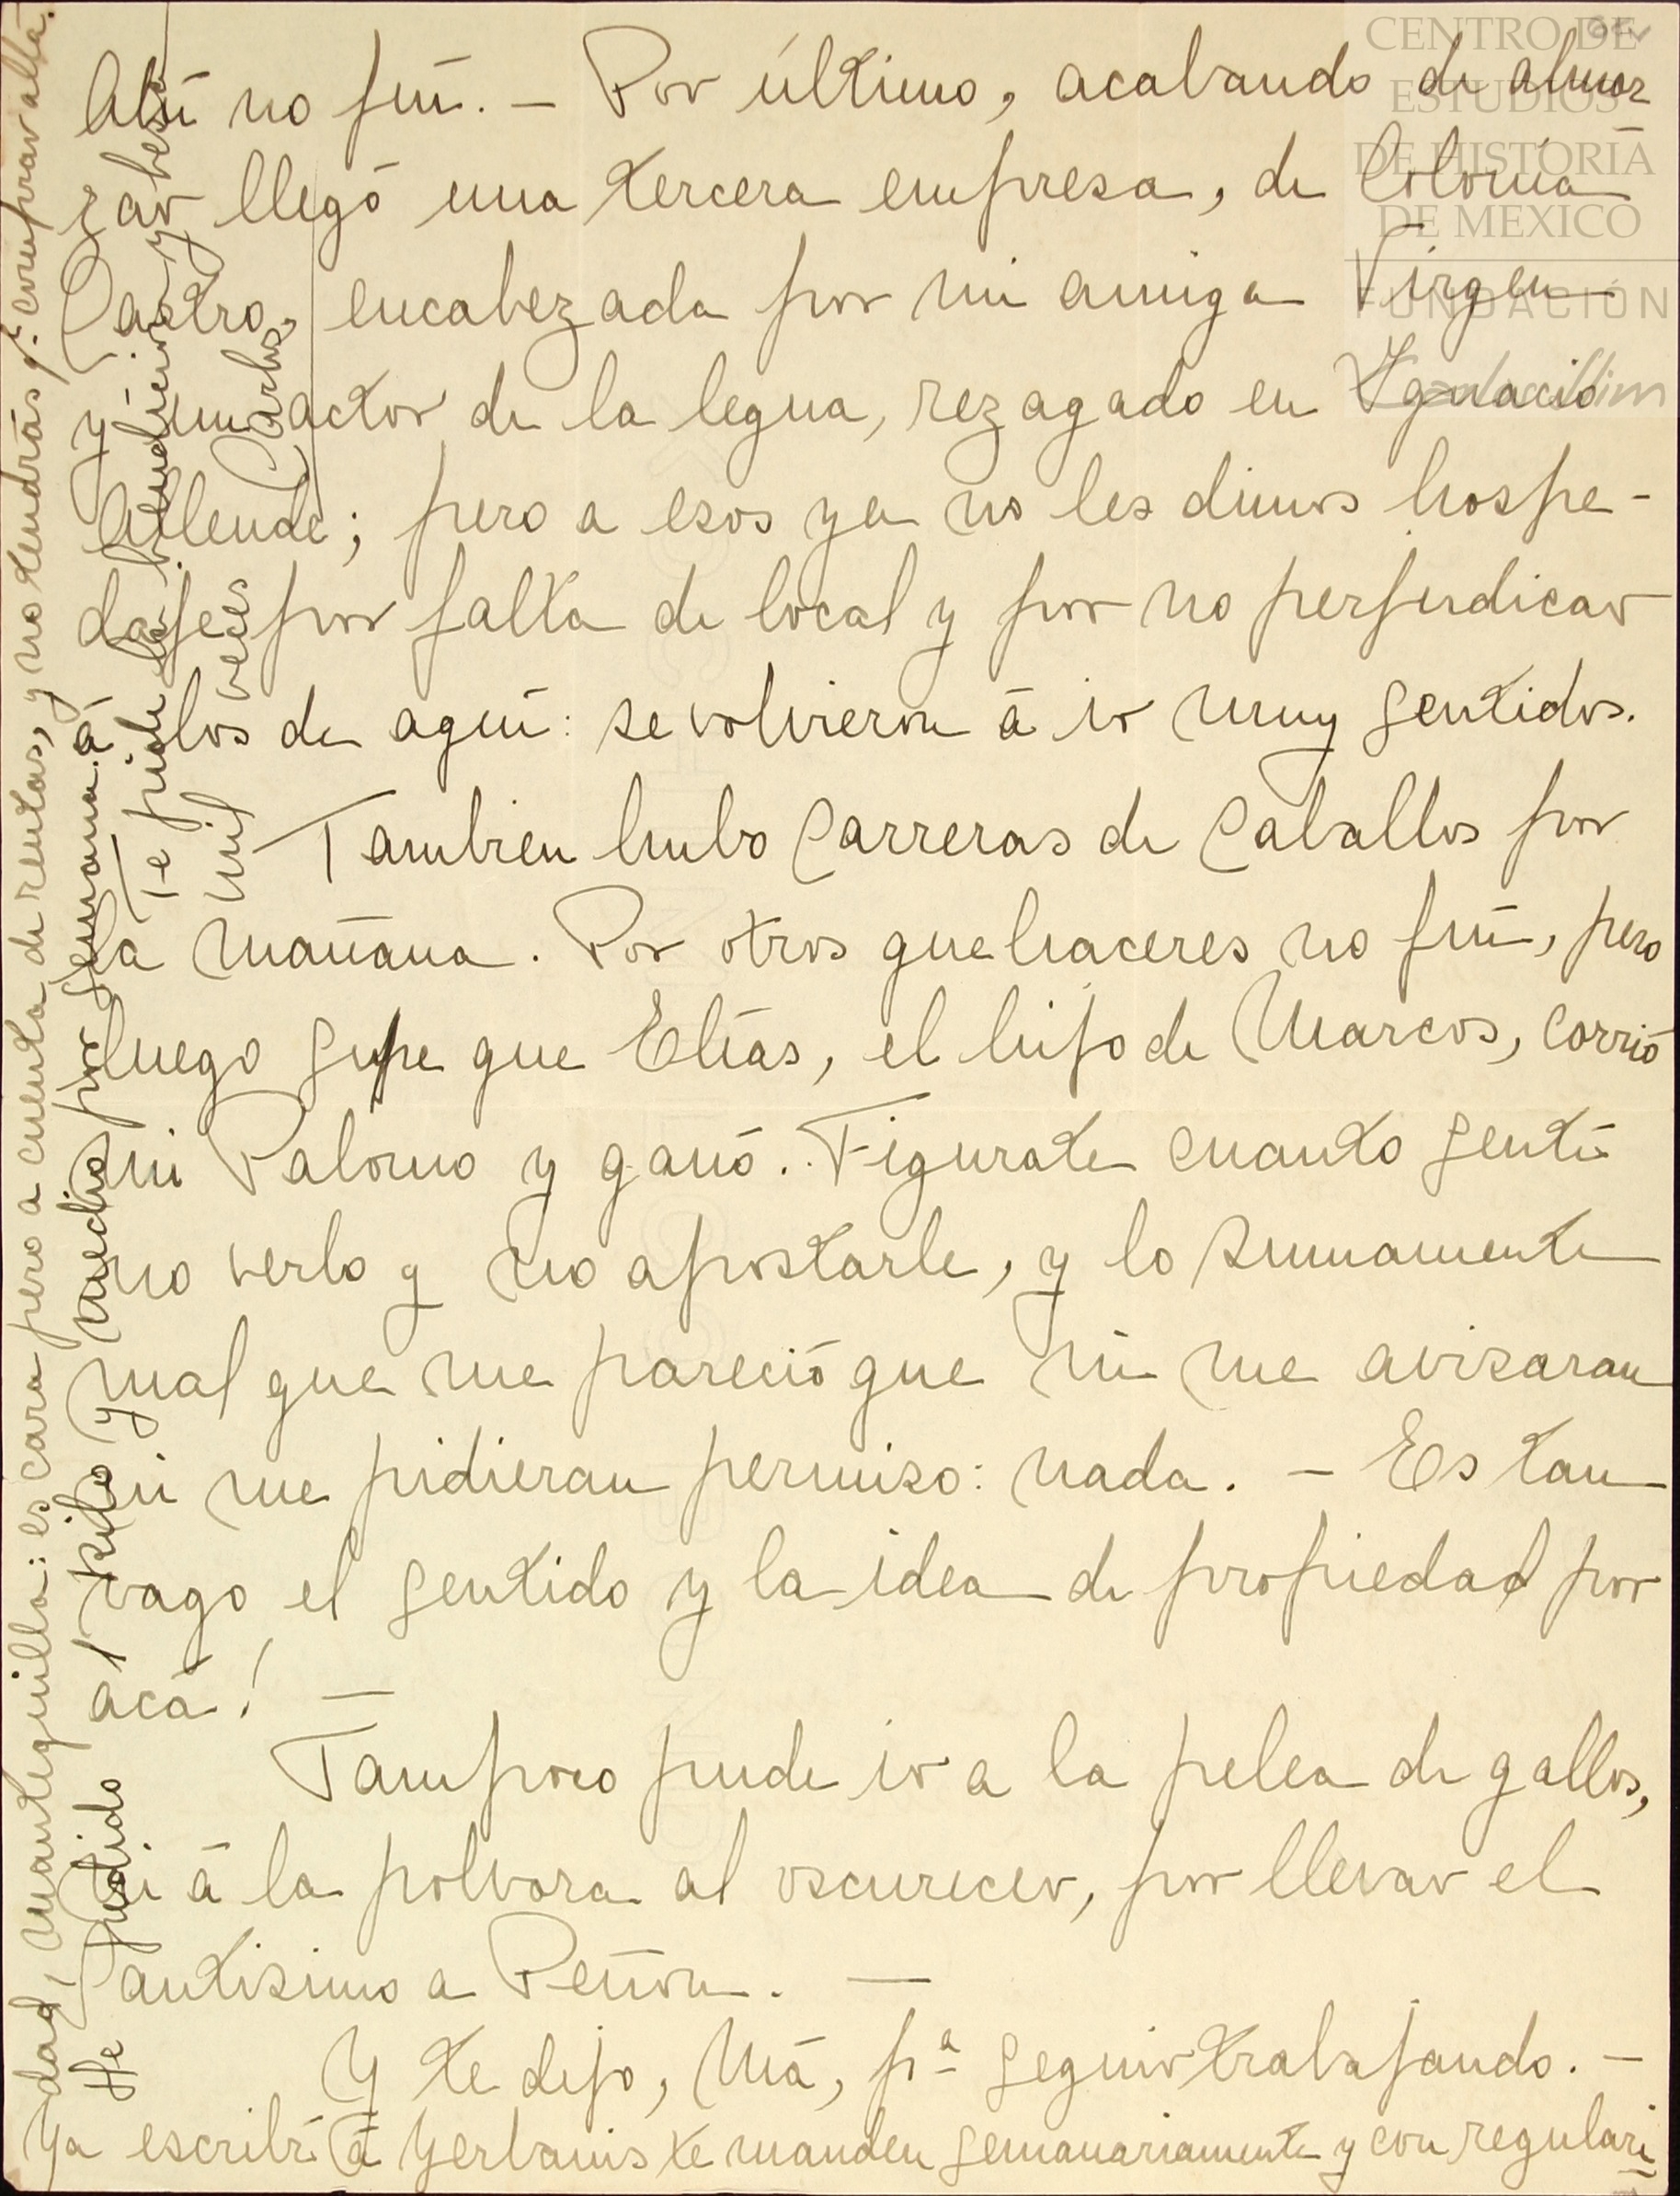 Ahí no fuí. — Por último, acabando de almor
zar llegó una tercera empresa, de Colonia
Castro, encabezada por mi amiga Virgen
y un actor de la legua, rezagado en Ignacio
Allende; pero a esos ya no les dimos hospe-
daje por falta de local y por no perjudicar
a los de aquí: se volvieron á ir muy sentidos.
Tambien hubo Carreras de Caballos por
la mañana. Por otros quehaceres no fuí, pero
luego supe que Elías, el hijo de Marcos, corrió
mi Palomo y ganó. Figurate cuanto sentí
no verlo y no apostarle, y lo sumamente
mal que me pareció que ni me avisaran
ni me pidieran permiso: nada. — Es tan
vago el sentido y la idea de propiedad por
acá! —
Tampoco pude ir a la pelea de gallos,
ni á la polvora al oscurecer, por llevar el
Santisimo a Peñon. —
Y te dejo, Má, pª seguir trabajando. —
Ya escribí á Yerbanis te manden semanariamente y con regulari
dad, mantequilla: es cara pero a cuenta de rentas, y no tendrás qᵉ comprar allá.
He pedido 1 kilo y medio por semana.
Te pide la bendición y besa
mil veces
Carlos
CENTRO DE
ESTUDIOS
DE HISTORIA
DE MEXICO
FUNDACIÓN